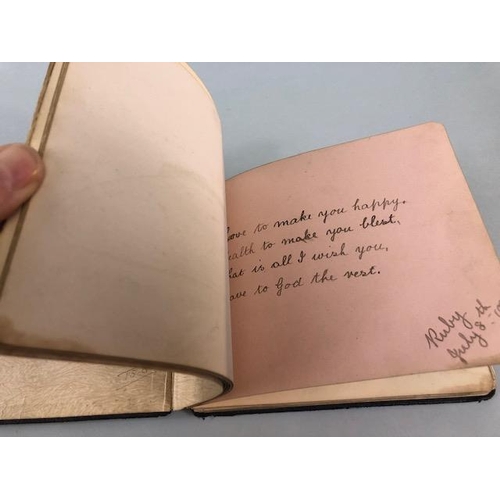 ove to make you happy.
ealth to make you blest,
hat is all I wish you,
ave to God the rest.
Ruby
July 8th